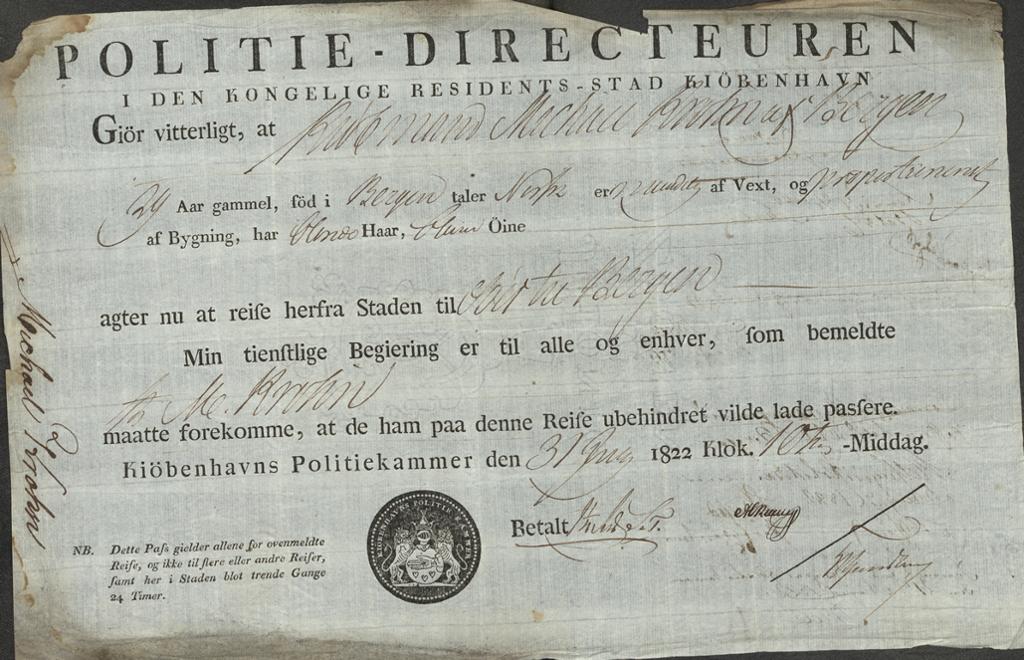 POLITIE-DIRECTEUREN
I DEN KONGELIGE RESIDENTS-STAD KIÖBENHAVN
Giör vitterligt, at Kiöbmand Michael Krohn af Bergen
29 Aar gammel, föd i Bergen taler Norsk er af Vext, og proportioneret
af Bygning, har Haar, Öine
agter nu at reiſe herfra Staden til Bergen
Min tienſtlige Begiering er til alle og enhver, ſom bemeldte
M. Krohn
maatte forekomme, at de ham paa denne Reiſe ubehindret vilde lade paſſere.
Kiöbenhavns Politiekammer den 31 1822 Klok. 10 -Middag.
Betalt
NB. Dette Paſs gielder allene for ovenmeldte
Reiſe, og ikke til flere eller andre Reiſer,
ſamt her i Staden blot trende Gange
24 Timer.
Michael Krohn